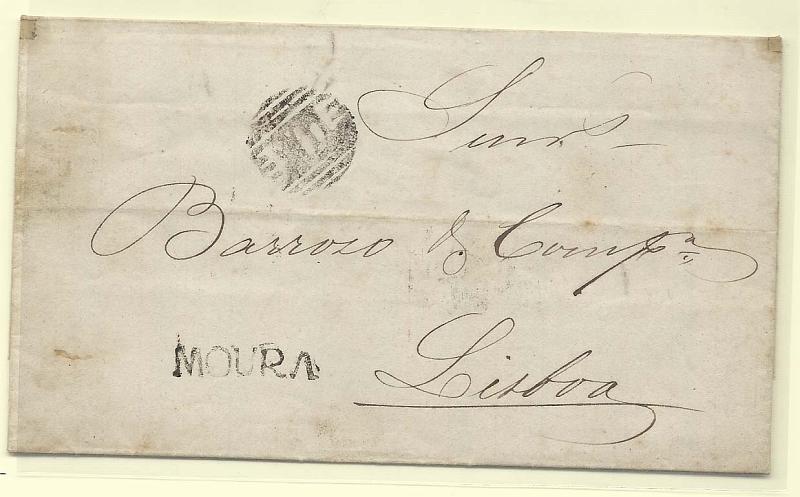 Snrs
Barrozo & Compª
MOURA
Lisboa